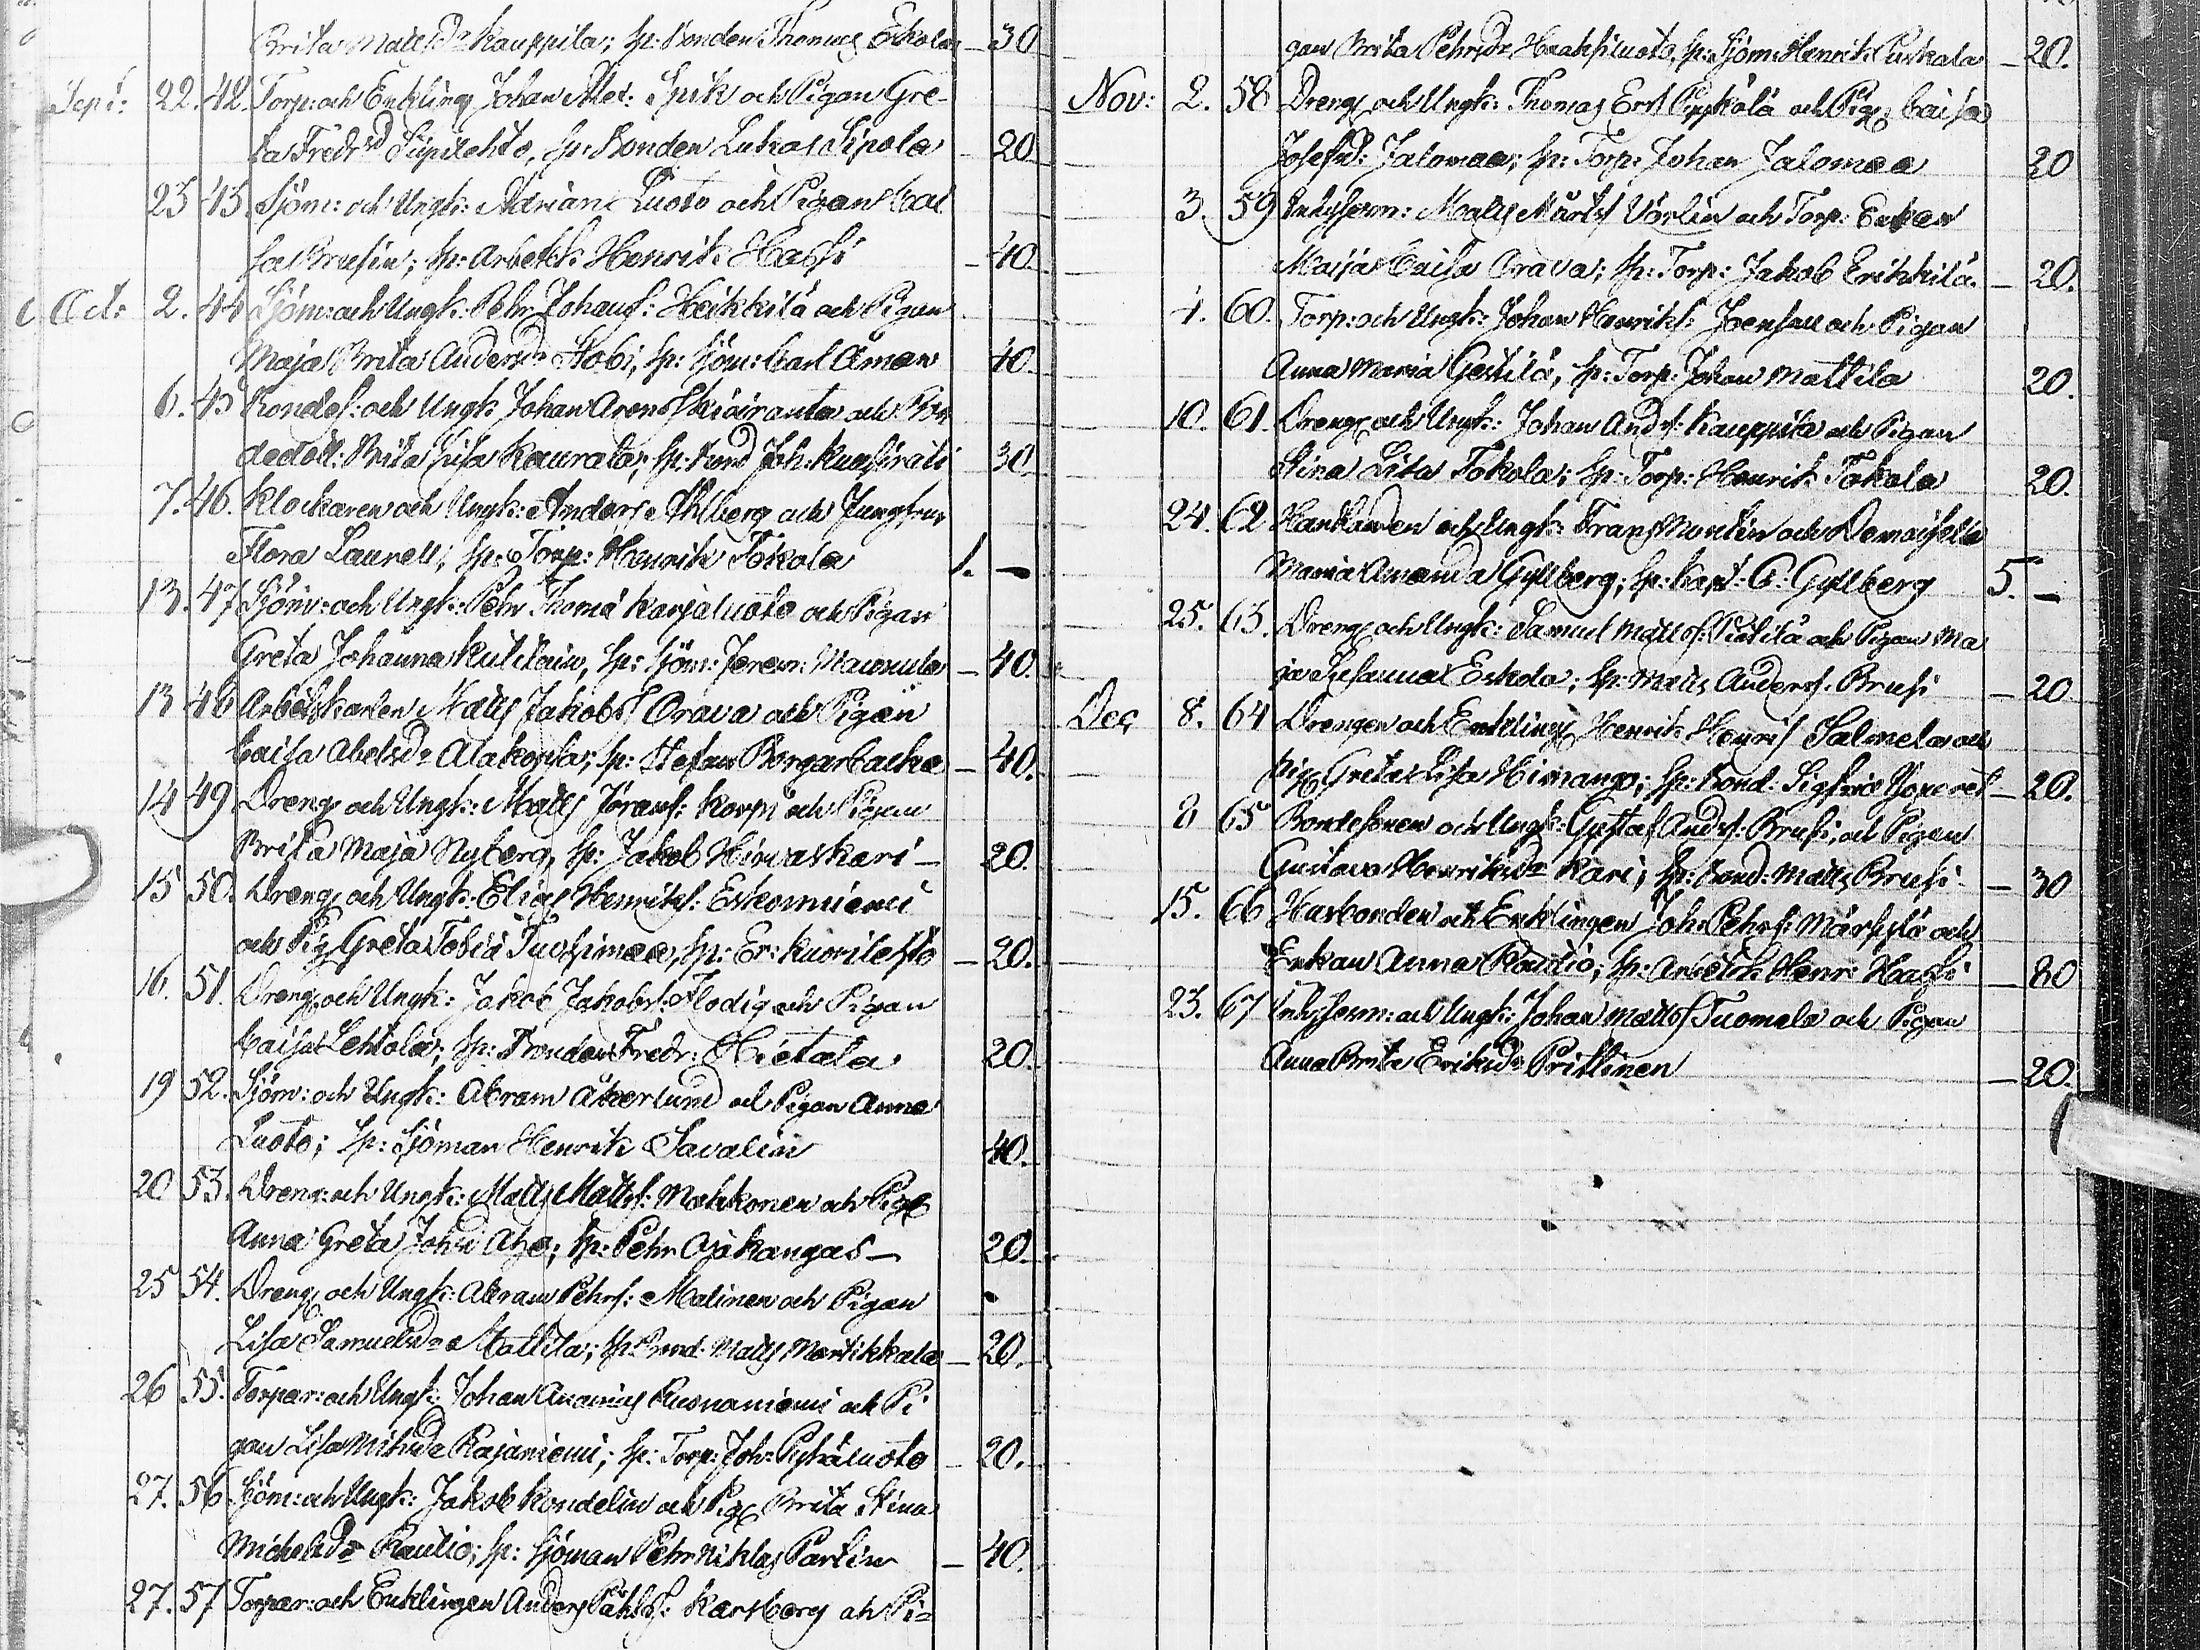 Brita Mattsdr Kauppila; sp: bonden Thomas Eskola – 30
Sept: 22. 42. Torp: och Enkling Johan Alex: Spik och Pigan Gre-
ta Fredrsd Siipilehto, sp: Bonden Lukas Sipola – 20
23 43. Sjöm: och Ungk: Adrian Luoto och Pigan Cai
sa Brusin; sp: Arbetsk: Henrik Hassi – 40.
Oct: 2. 44 Sjöm: och Ungk: Pehr Johans: Heikkilä och Pigan
Maja Brita Andersdr Stobi; sp: Sjöm: Carl Åman 40.
6. 45 Bondes: och Ungk: Johan Arons och Bon
dedott: Brita Lisa Kaurala; sp: Bond Joh: 30
7. 46. Klockaren och Ungk: Anders Ahlberg och Jungfrun
Flora Laurell; sp: Torp: Henrik Tokola 1. –
13. 47 Sjöm: och Ungk: Pehr Thomæ Karjaluoto och Pigan
Greta Johanna; sp: Sjöm: Jerem: Maunula – 40.
13 48 Arbetskarlen Matts Jakobs Orava och Pigan
Caisa Abelsdr Alakopsa; sp: Stefan Borgarbacka – 40.
14 49 Dreng och Ungk: Matts Jörans: Korpi och Pigan
Brita Maja Nyberg, sp: Jakob Hirvaskari – 20.
15 50. Dreng och Ungk: Elias Henriks: Eskonniemi
och Pig Greta Tobiæ Tuosimaa, sp: Er: Kuorilehto – 20.
16. 51. Dreng och Ungk: Jakob Jakobs: Flodig och Pigan
Caisa Lehtola; sp: Bonden Fredr: Hietala. 20.
19 52. Sjöm: och Ungk: Abram Åkerlund och Pigan Anna
Luoto; sp: Sjöman Henrik Savalin 40.
20 53. Dreng: och Ungk: Matts Matts: Makkonen och Pig
Anna Greta Johsdr Ahza; sp: Pehr Ojakangas – 20.
25 54. Dreng och Ungk: Abram Pehrs: Malinen och Pigan
Lisa Samuelsdr Mattila; sp: Bond: Matts Martikkala – 20.
26 55. Torpar: och Ungk: Johan Ananias Ruonaniemi och Pi
gan Lisa Rajaniemi; sp: Torp: Joh: Pyhäluoto – 20.
27. 56 Sjöm: och Ungk: Jakob Rondelin och Pig Brita Stina
Michelsdr Rautio; sp: Sjöman Pehr Niklas Partin – 40.
27. 57 Torpar: och Enklingen Anders Påhls: Karlberg och Pi=
gan Brita Pehrsdr Haahsiluoto, sp: Sjöm: Henrik Puskala – 20.
Nov: 2. 58 Dreng och Ungk: Thomas Ers Pyykölä och Pig Caisa
Josefsd: Jalomaa; sp: Torp: Johan Jalomaa 20
3. 59 Inhysesm: Matts Mårts Vörlin och Torp: Enkan
Maija Caisa Orava; sp: Torp: Jakob Erikkilä. – 20.
4. 60. Torp: och Ungk: Johan Henriks: Joensuu och Pigan
Anna Maria Gestilä, sp: Torp: Johan Mattila 20.
10. 61. Dreng och Ungk: Johan Andrs: Kauppila och Pigan
Stina Lisa Tokola; sp: Torp: Henrik Tokola 20.
24. 62 Handlanden och Ungk: Frans Montin och Demoiselle
Maria Amanda Gyllberg; sp: Kapt: C: Gyllberg 5. –
25. 63. Dreng och Ungk: Samuel Matts: Pietilä och Pigan Ma
ja Susanna Eskola; sp: Matts Anders: Brusi – 20
Dec 8. 64 Drengen och Enkling Henrik Henris Salmela och
Pig Greta Lisa Himango; sp: Bond: Sigfrid – 20.
8 65 Bondesonen och Ungk: Gustaf Andrs: Brusi, och Pigan
Gustava Henriksdr Kari; sp: Bond: Matts Brusi – 30
15. 66 Husbonden och Enklingen Joh: Pehrs: Märsylä och
Enkan Anna Rautio; sp: Arbetsk: Henr: Hassi – 80
23. 67 Inhysesm: och Ungk: Johan Matts Tuomela och Pigan
Anna Brita Eriksdr Prittinen – 20.